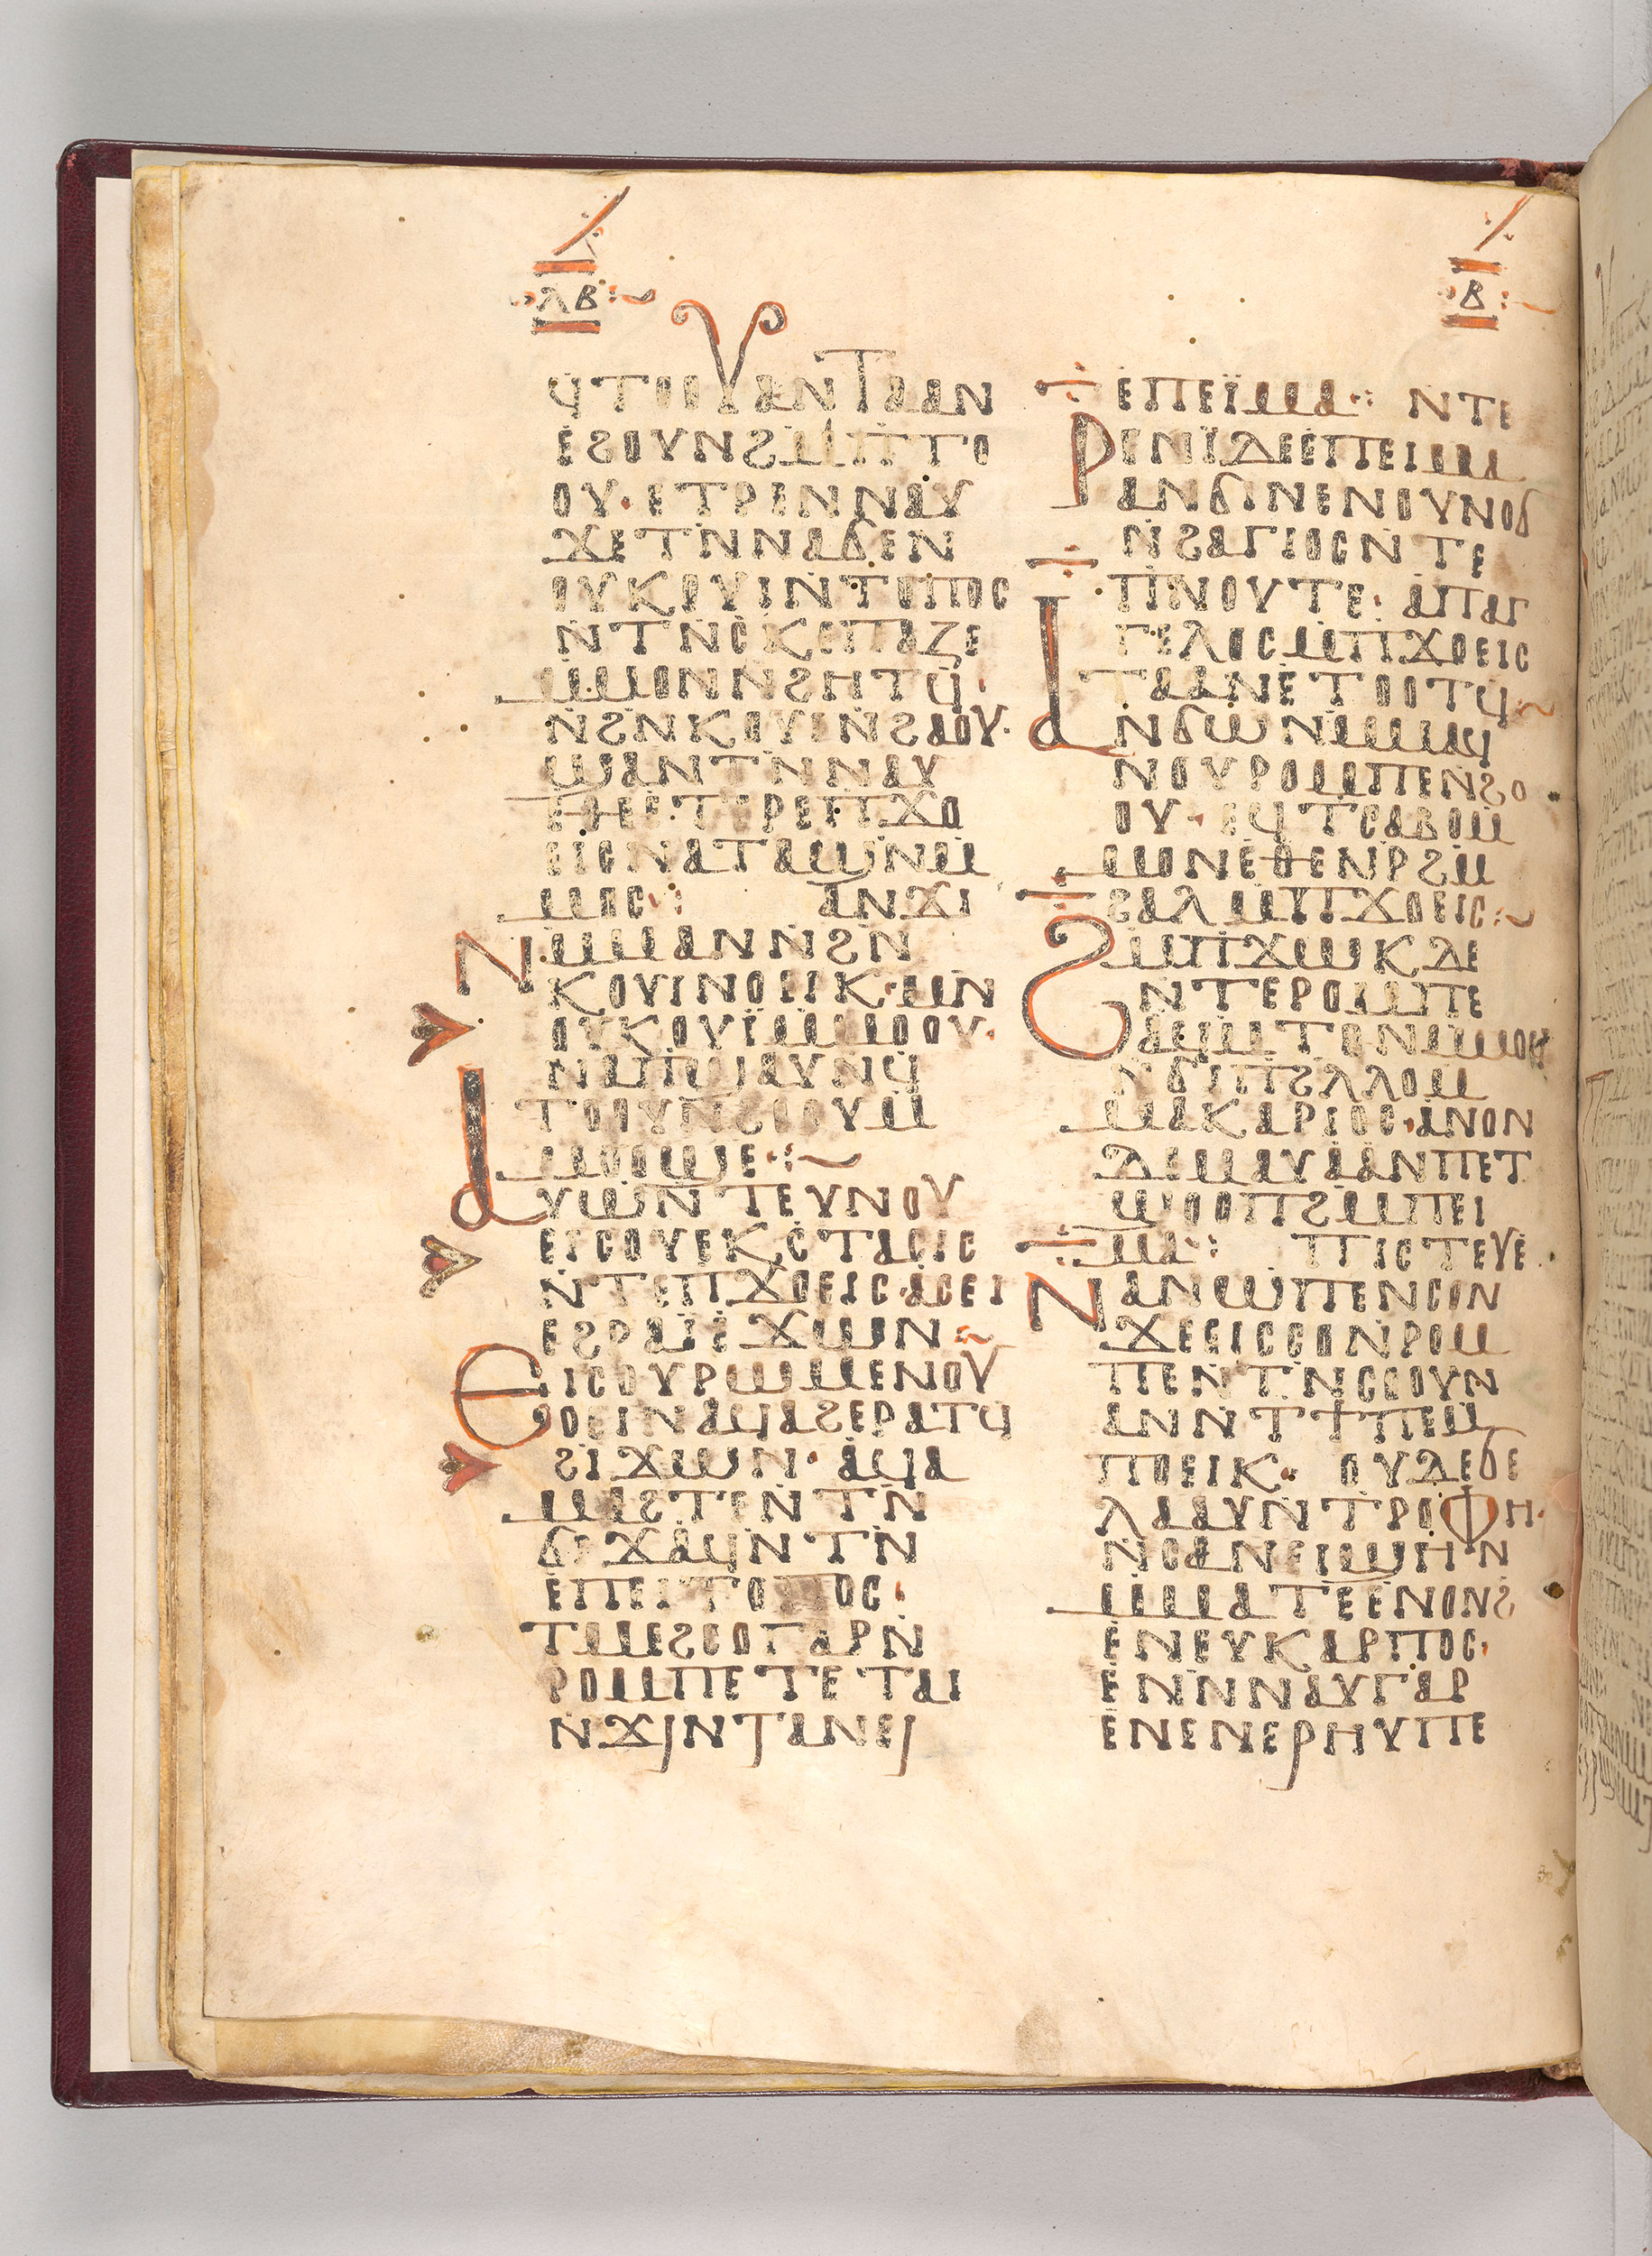 ⲗⲃ
ⲃ
ϥⲧⲟⲟⲩ ⲁⲛⲧⲁⲁⲛ
ⲉϩⲟⲩⲛ ϩⲙ ⲡⲧⲟ
ⲟⲩ· ⲉⲧⲣⲉⲛⲛⲁⲩ
ϫⲉ ⲧⲛⲛⲁϭⲉⲛ
ⲟⲩⲕⲟⲩⲓ ⲛⲧⲟⲡⲟⲥ
ⲛⲧⲛⲥⲕⲉⲡⲁⲍⲉ
ⲙⲙⲟⲛ ⲛϩⲏⲧϥ·
ⲛϩⲛⲕⲟⲩⲓ ⲛϩⲟⲟⲩ·
ϣⲁⲛⲧⲛⲛⲁⲩ
ⲑⲉ ⲉⲧⲉⲣⲉⲡϫⲟ
ⲉⲓⲥ ⲛⲁⲧⲁϣⲛ ⲙ
ⲙⲟⲥ: ⲁⲛϫⲓ
ⲛⲙⲙⲁⲛ ⲛϩⲛ
ⲕⲟⲩⲓ ⲛⲟⲉⲓⲕ· ⲙⲛ
ⲟⲩⲕⲟⲩⲓ ⲙⲙⲟⲟⲩ·
ⲛⲁⲡϣⲁ ⲩⲛϥ
ⲧⲟⲟⲩ ⲛϩⲟⲟⲩ ⲙ
ⲙⲟⲟϣⲉ·:
ⲁⲩⲱ ⲛⲧⲉⲩⲛⲟⲩ
ⲉⲓⲥ ⲟⲩⲉⲕⲥⲧⲁⲥⲓⲥ
ⲛⲧⲉ ⲡϫⲟⲉⲓⲥ· ⲁⲥⲉⲓ
ⲉϩⲣⲁⲓ ⲉϫⲱⲛ
ⲉⲓⲥ ⲟⲩⲣⲱⲙⲉ ⲛⲟⲩ
ⲟⲉⲓⲛ ⲁϥⲁϩⲉⲣⲁⲧϥ
ϩⲓϫⲱⲛ· ⲁϥⲁ
ⲙⲁϩⲧⲉ ⲛⲧⲛ
ϭⲓϫ ⲁϥⲛⲧⲛ
ⲉⲡⲉⲓⲧⲟⲡⲟⲥ·
ⲧⲙⲉϩⲥⲟ ⲅⲁⲣ ⲛ
ⲣⲟⲙⲡⲉ ⲧⲉ ⲧⲁⲓ
ⲛϫⲓⲛⲧⲁⲛⲉⲓ
ⲉⲡⲉⲓⲙⲁ: ⲛⲧⲉ
ⲣⲉⲛⲓ ⲇⲉ ⲉⲡⲉⲓⲙⲁ
ⲁⲛϭⲓⲛⲉ ⲛⲟⲩⲛⲟϭ
ⲛϩⲁⲅⲓⲟⲥ ⲛⲧⲉ
ⲡⲛⲟⲩⲧⲉ: ⲁⲡⲁⲅ
ⲅⲉⲗⲟⲥ ⲙⲡϫⲟⲉⲓⲥ
ⲧⲁⲁⲛ ⲉⲧⲟⲟⲧϥ
ⲁⲛϭⲱ ⲛⲙⲙⲁϥ
ⲛⲟⲩⲣⲟⲙⲡⲉ ⲛϩⲟ
ⲟⲩ· ⲉϥⲧⲥⲁⲃⲟ ⲙ
ⲙⲟⲛ ⲉⲑⲉ ⲛⲣϩⲙ
ϩⲁⲗ ⲙⲡϫⲟⲉⲓⲥ:
ϩⲙ ⲡϫⲱⲕ ⲇⲉ
ⲛⲧⲉⲣⲟⲙⲡⲉ
ⲁϥⲙⲧⲟⲛ ⲙⲙⲟϥ
ⲛϭⲓ ⲡϩⲗⲗⲟ ⲙ
ⲙⲁⲕⲁⲣⲓⲟⲥ· ⲁⲛⲟⲛ
ⲇⲉ ⲙⲁⲩⲁⲁⲛ ⲡⲉⲧ
ϣⲟⲟⲡ ϩⲙ ⲡⲉⲓ
ⲙⲁ: ⲡⲓⲥⲧⲉⲩⲉ
ⲛⲁⲛ ⲱ ⲡⲉⲛⲥⲟⲛ
ϫⲉ ⲉⲓⲥ ⲥⲟ ⲛⲣⲟⲙ
ⲡⲉ ⲛⲧⲛⲥⲟⲟⲩⲛ
ⲁⲛ ⲛⲧϯⲡⲉ ⲙ
ⲡⲟⲉⲓⲕ· ⲟⲩⲇⲉ ϭⲉ
ⲗⲁⲁⲩ ⲛⲧⲣⲟⲫⲏ·
ⲛⲥⲁ ⲛⲉⲓϣⲏⲛ
ⲙⲙⲁⲧⲉ ⲉⲛⲟⲛϩ
ⲉⲛⲉⲩⲕⲁⲣⲡⲟⲥ·
ⲉⲛⲛⲛⲁⲩ ⲅⲁⲣ
ⲉⲛⲉⲛⲉⲣⲏⲩ ⲡⲉ